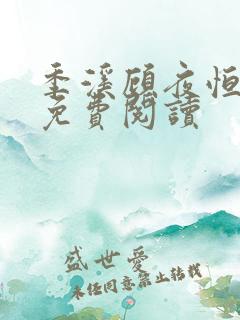 季溪顾夜恒
免費閱讀
盛世愛
未经同意禁止转载